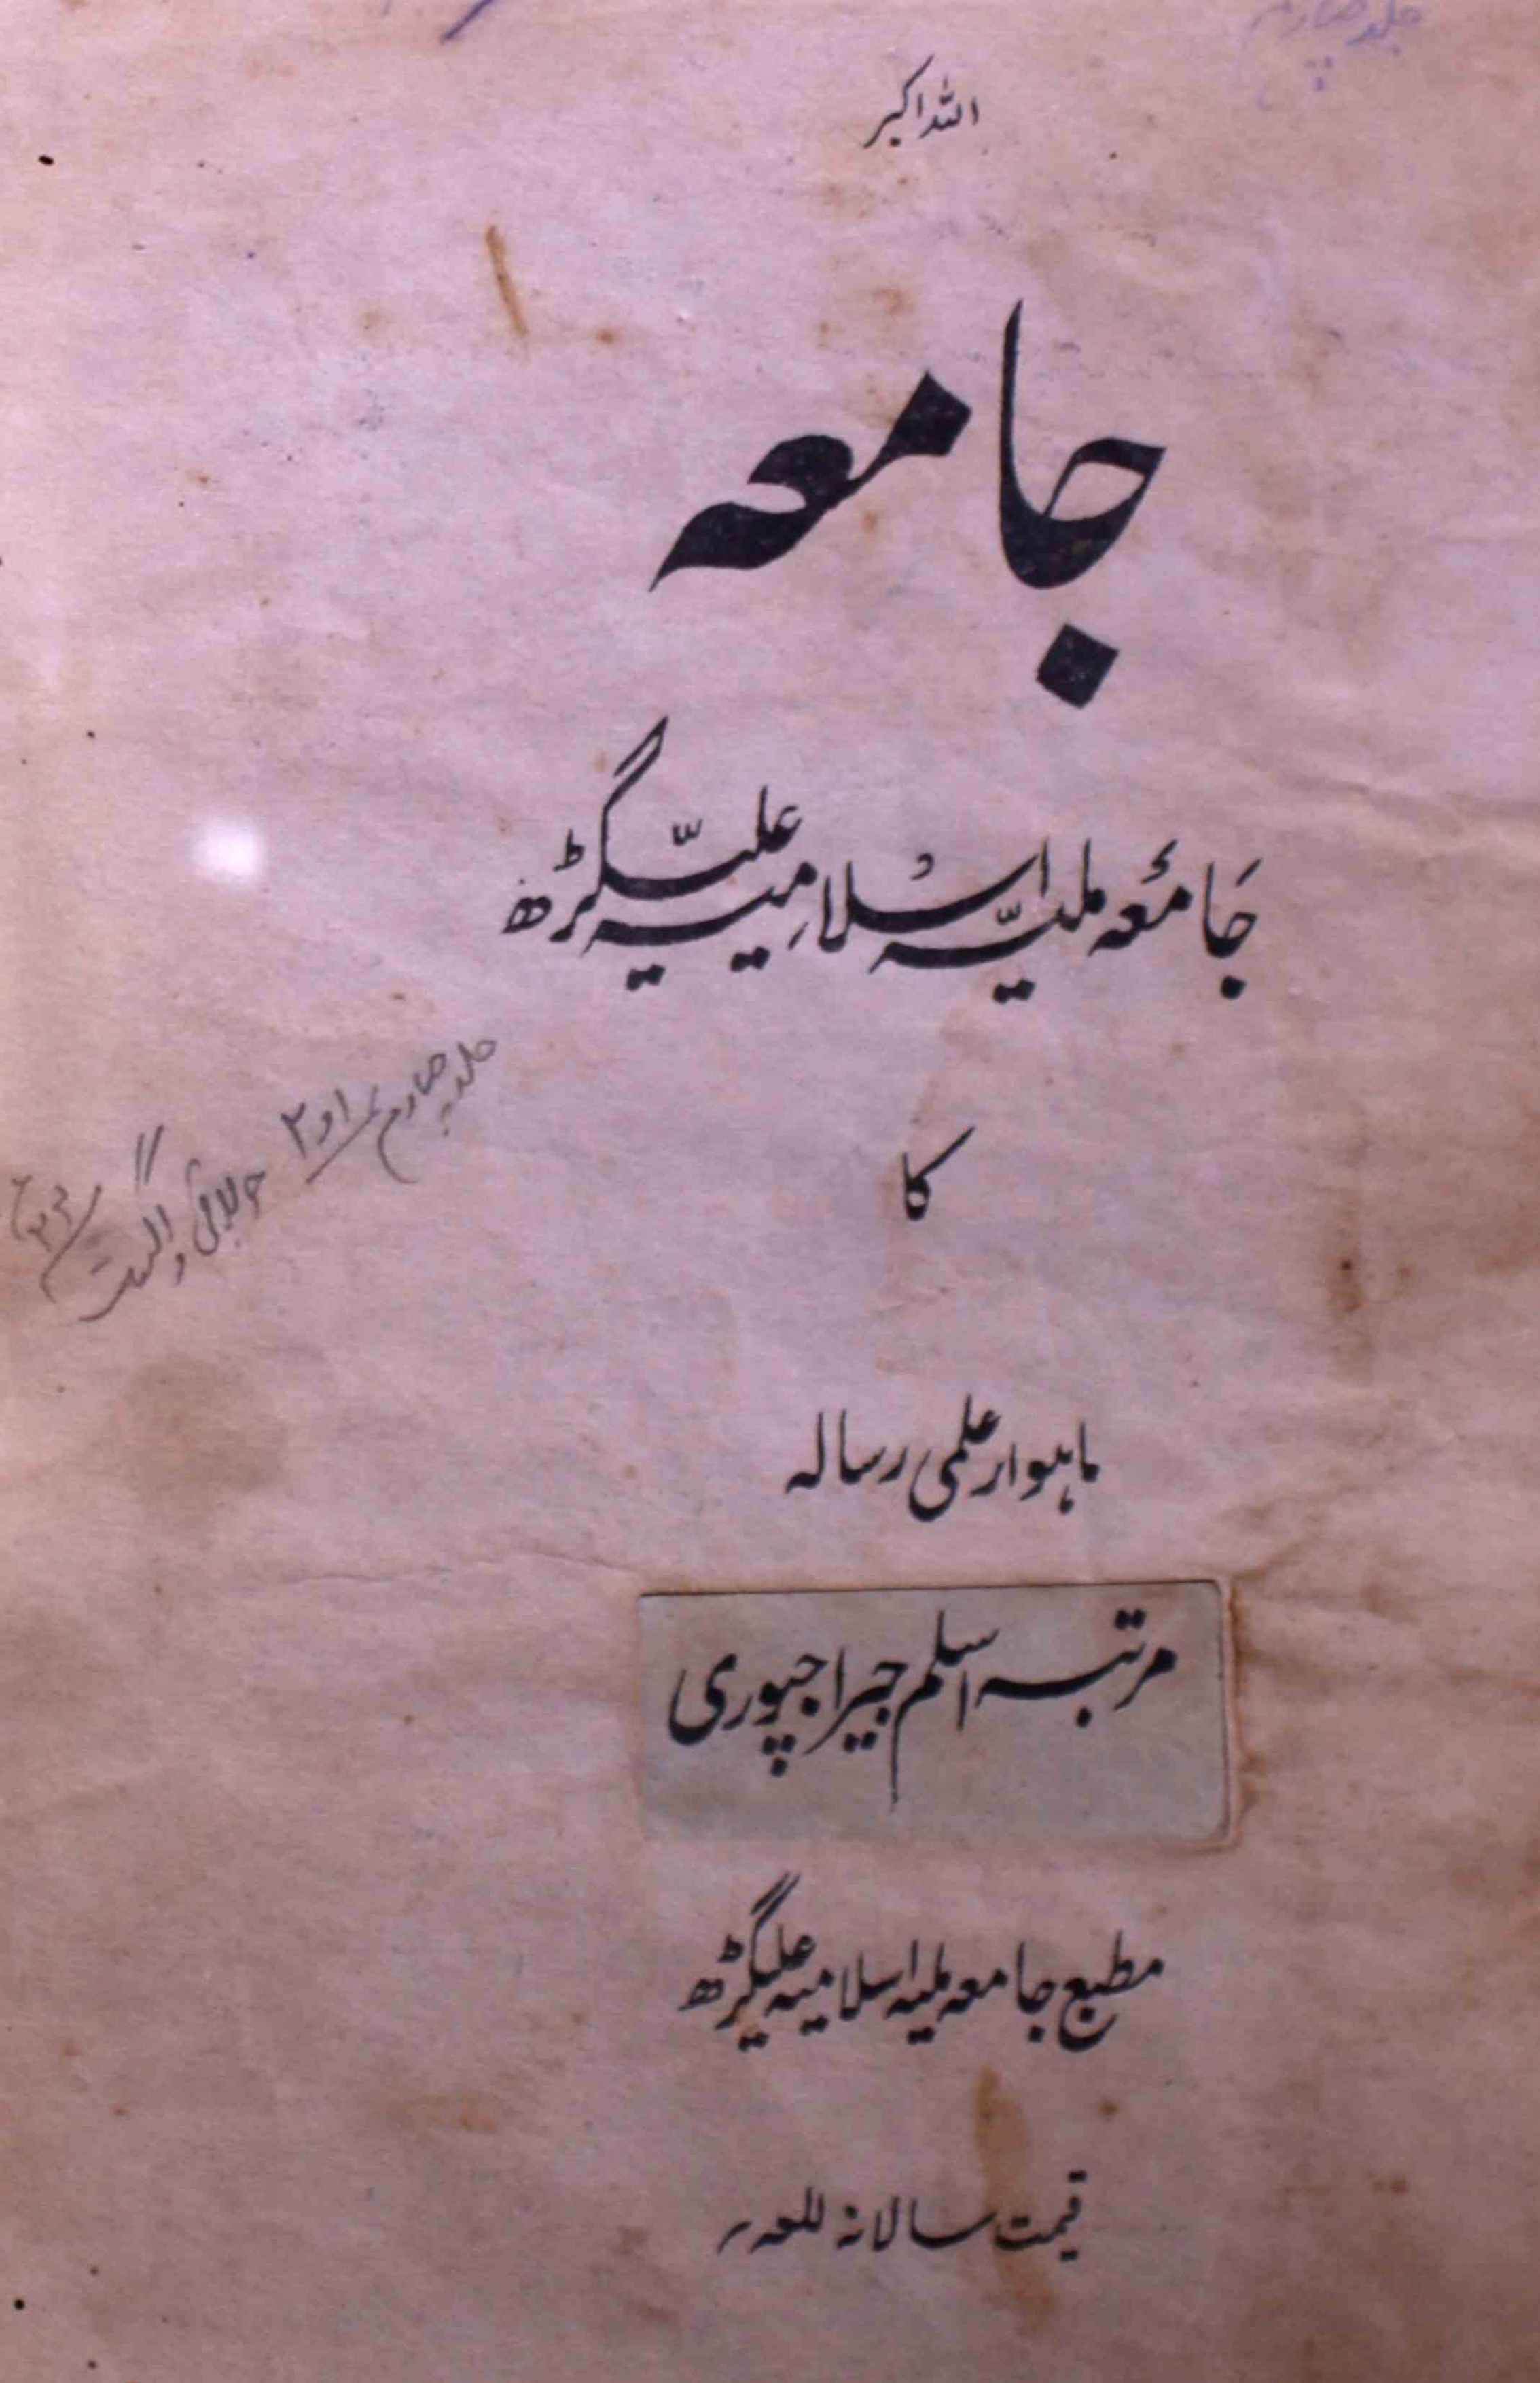 جلد چہارم
اللہ اکبر
جامعہ
جامعہ ملیہ اسلامیہ علیگڑھ
کا
جلد چہارم ۱ و ۲ جولائی و اگست ۲۴ء
ماہوار علمی رسالہ
مرتبہ اسلم جیراجپوری
مطبع جامعہ ملیہ اسلامیہ علیگڑھ
قیمت سالانہ للعہ ر